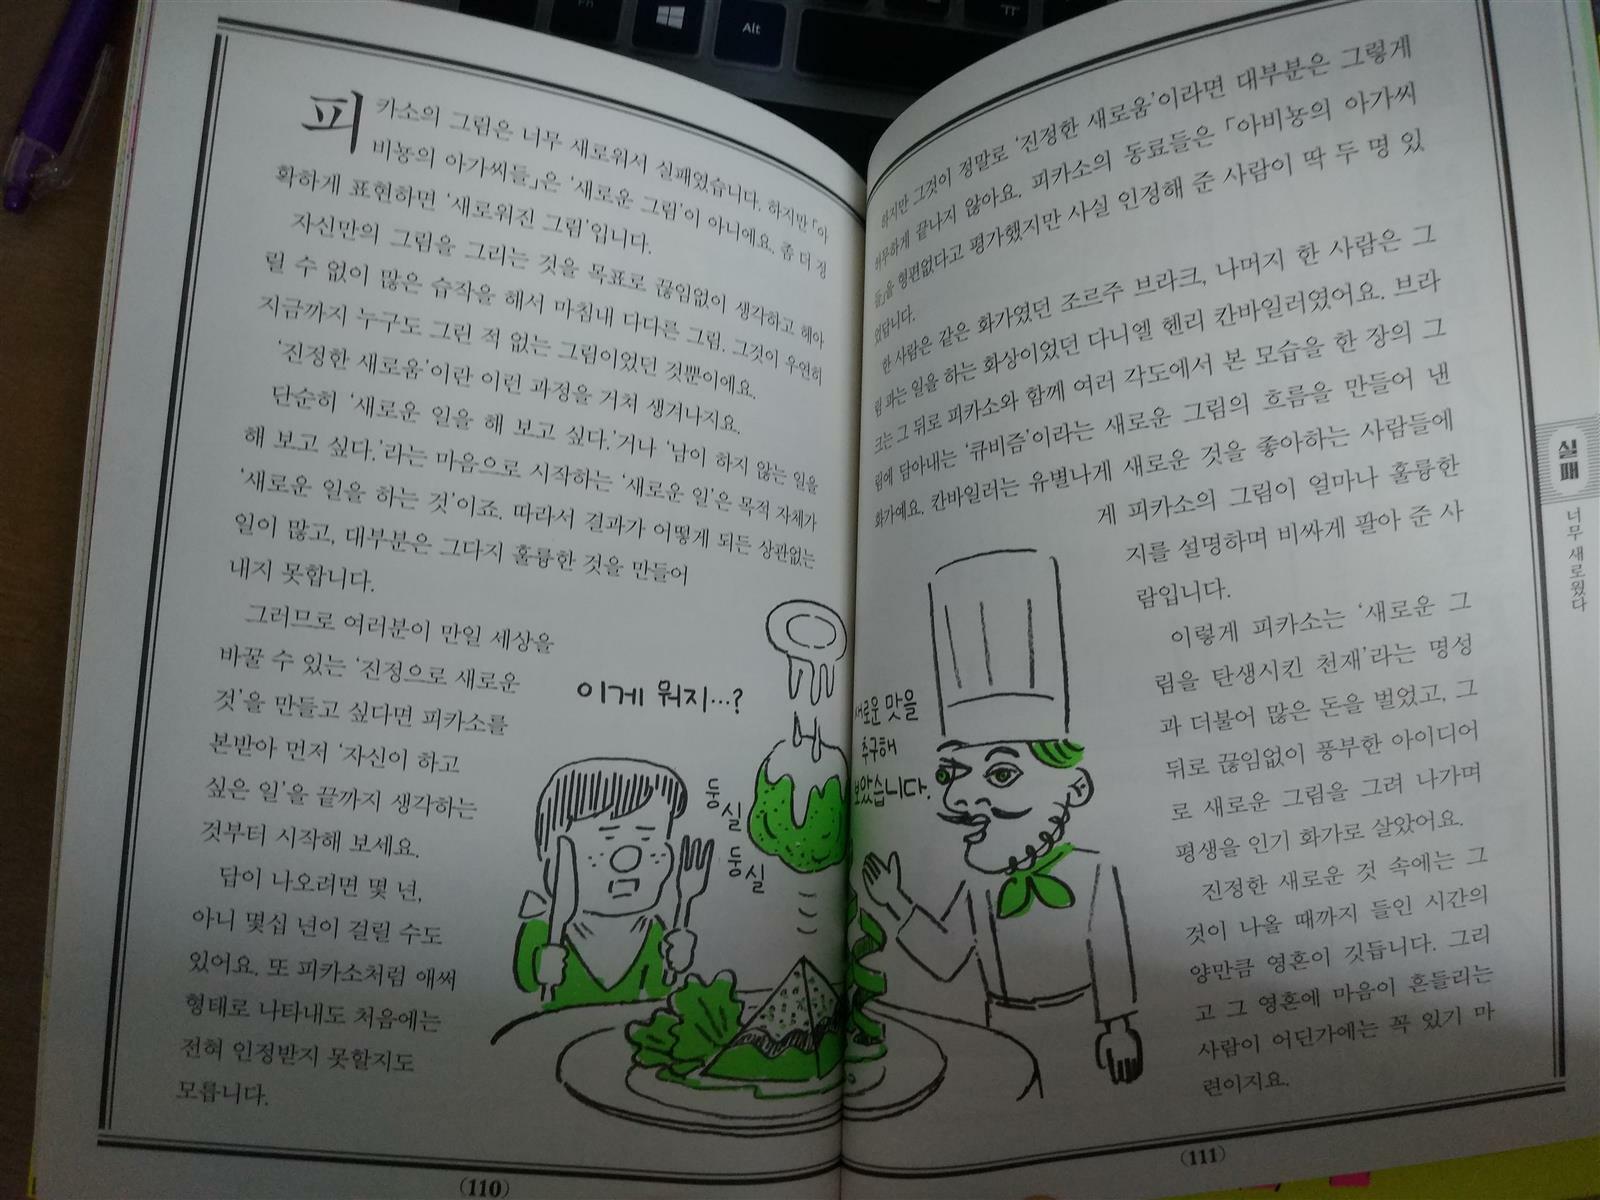 피카소의 그림은 너무 새로워서 실패였습니다. 하지만 「아
비뇽의 아가씨들」은 '새로운 그림'이 아니에요. 좀 더 정
확하게 표현하면 '새로워진 그림'입니다.
자신만의 그림을 그리는 것을 목표로 끊임없이 생각하고 헤아
릴 수 없이 많은 습작을 해서 마침내 다다른 그림. 그것이 우연히
지금까지 누구도 그린 적 없는 그림이었던 것뿐이에요.
'진정한 새로움'이란 이런 과정을 거쳐 생겨나지요.
단순히 '새로운 일을 해 보고 싶다.'거나 '남이 하지 않는 일을
해 보고 싶다.'라는 마음으로 시작하는 '새로운 일'은 목적 자체가
'새로운 일을 하는 것'이죠. 따라서 결과가 어떻게 되든 상관없는
일이 많고, 대부분은 그다지 훌륭한 것을 만들어
내지 못합니다.
그러므로 여러분이 만일 세상을
바꿀 수 있는 '진정으로 새로운
것'을 만들고 싶다면 피카소를
본받아 먼저 '자신이 하고
싶은 일'을 끝까지 생각하는
것부터 시작해 보세요.
답이 나오려면 몇 년,
아니 몇십 년이 걸릴 수도
있어요. 또 피카소처럼 애써
형태로 나타내도 처음에는
전혀 인정받지 못할지도
모릅니다.
이게 뭐지…?
둥
실
둥
실
(110)
하지만 그것이 정말로 '진정한 새로움'이라면 대부분은 그렇게
허무하게 끝나지 않아요. 피카소의 동료들은 「아비뇽의 아가씨
들」을 형편없다고 평가했지만 사실 인정해 준 사람이 딱 두 명 있
었답니다.
한 사람은 같은 화가였던 조르주 브라크, 나머지 한 사람은 그
림 파는 일을 하는 화상이었던 다니엘 헨리 칸바일러였어요. 브라
크는 그 뒤로 피카소와 함께 여러 각도에서 본 모습을 한 장의 그
림에 담아내는 '큐비즘'이라는 새로운 그림의 흐름을 만들어 낸
화가예요. 칸바일러는 유별나게 새로운 것을 좋아하는 사람들에
게 피카소의 그림이 얼마나 훌륭한
지를 설명하며 비싸게 팔아 준 사
람입니다.
이렇게 피카소는 '새로운 그
림을 탄생시킨 천재'라는 명성
과 더불어 많은 돈을 벌었고, 그
뒤로 끊임없이 풍부한 아이디어
로 새로운 그림을 그려 나가며
평생을 인기 화가로 살았어요.
진정한 새로운 것 속에는 그
것이 나올 때까지 들인 시간의
양만큼 영혼이 깃듭니다. 그리
고 그 영혼에 마음이 흔들리는
사람이 어딘가에는 꼭 있기 마
련이지요.
새로운 맛을
추구해
보았습니다.
실패
너무 새로웠다
(111)
Fn
Alt
ㅠ